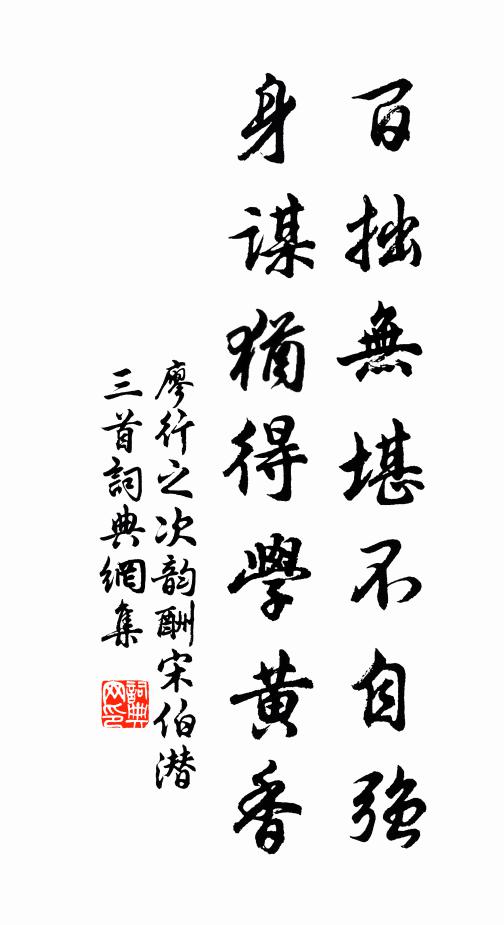 百拙無堪不自強
身謀猶得學黃香
廖行之次韵酬宋伯潜
三首詞典網集
詞典
网印